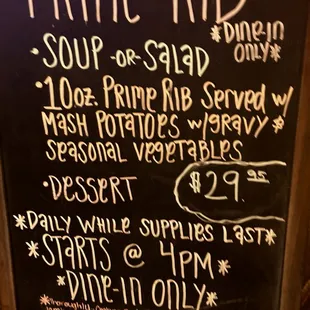 PRIME RIB
*DINE-IN ONLY*
• SOUP -OR- SALAD
• 10oz. PRIME RIB SERVED w/
MASH POTATOES w/GRAVY &
SEASONAL VEGETABLES
• DESSERT
$29.95
*DAILY WHILE SUPPLIES LAST*
*STARTS @ 4PM*
*DINE-IN ONLY*